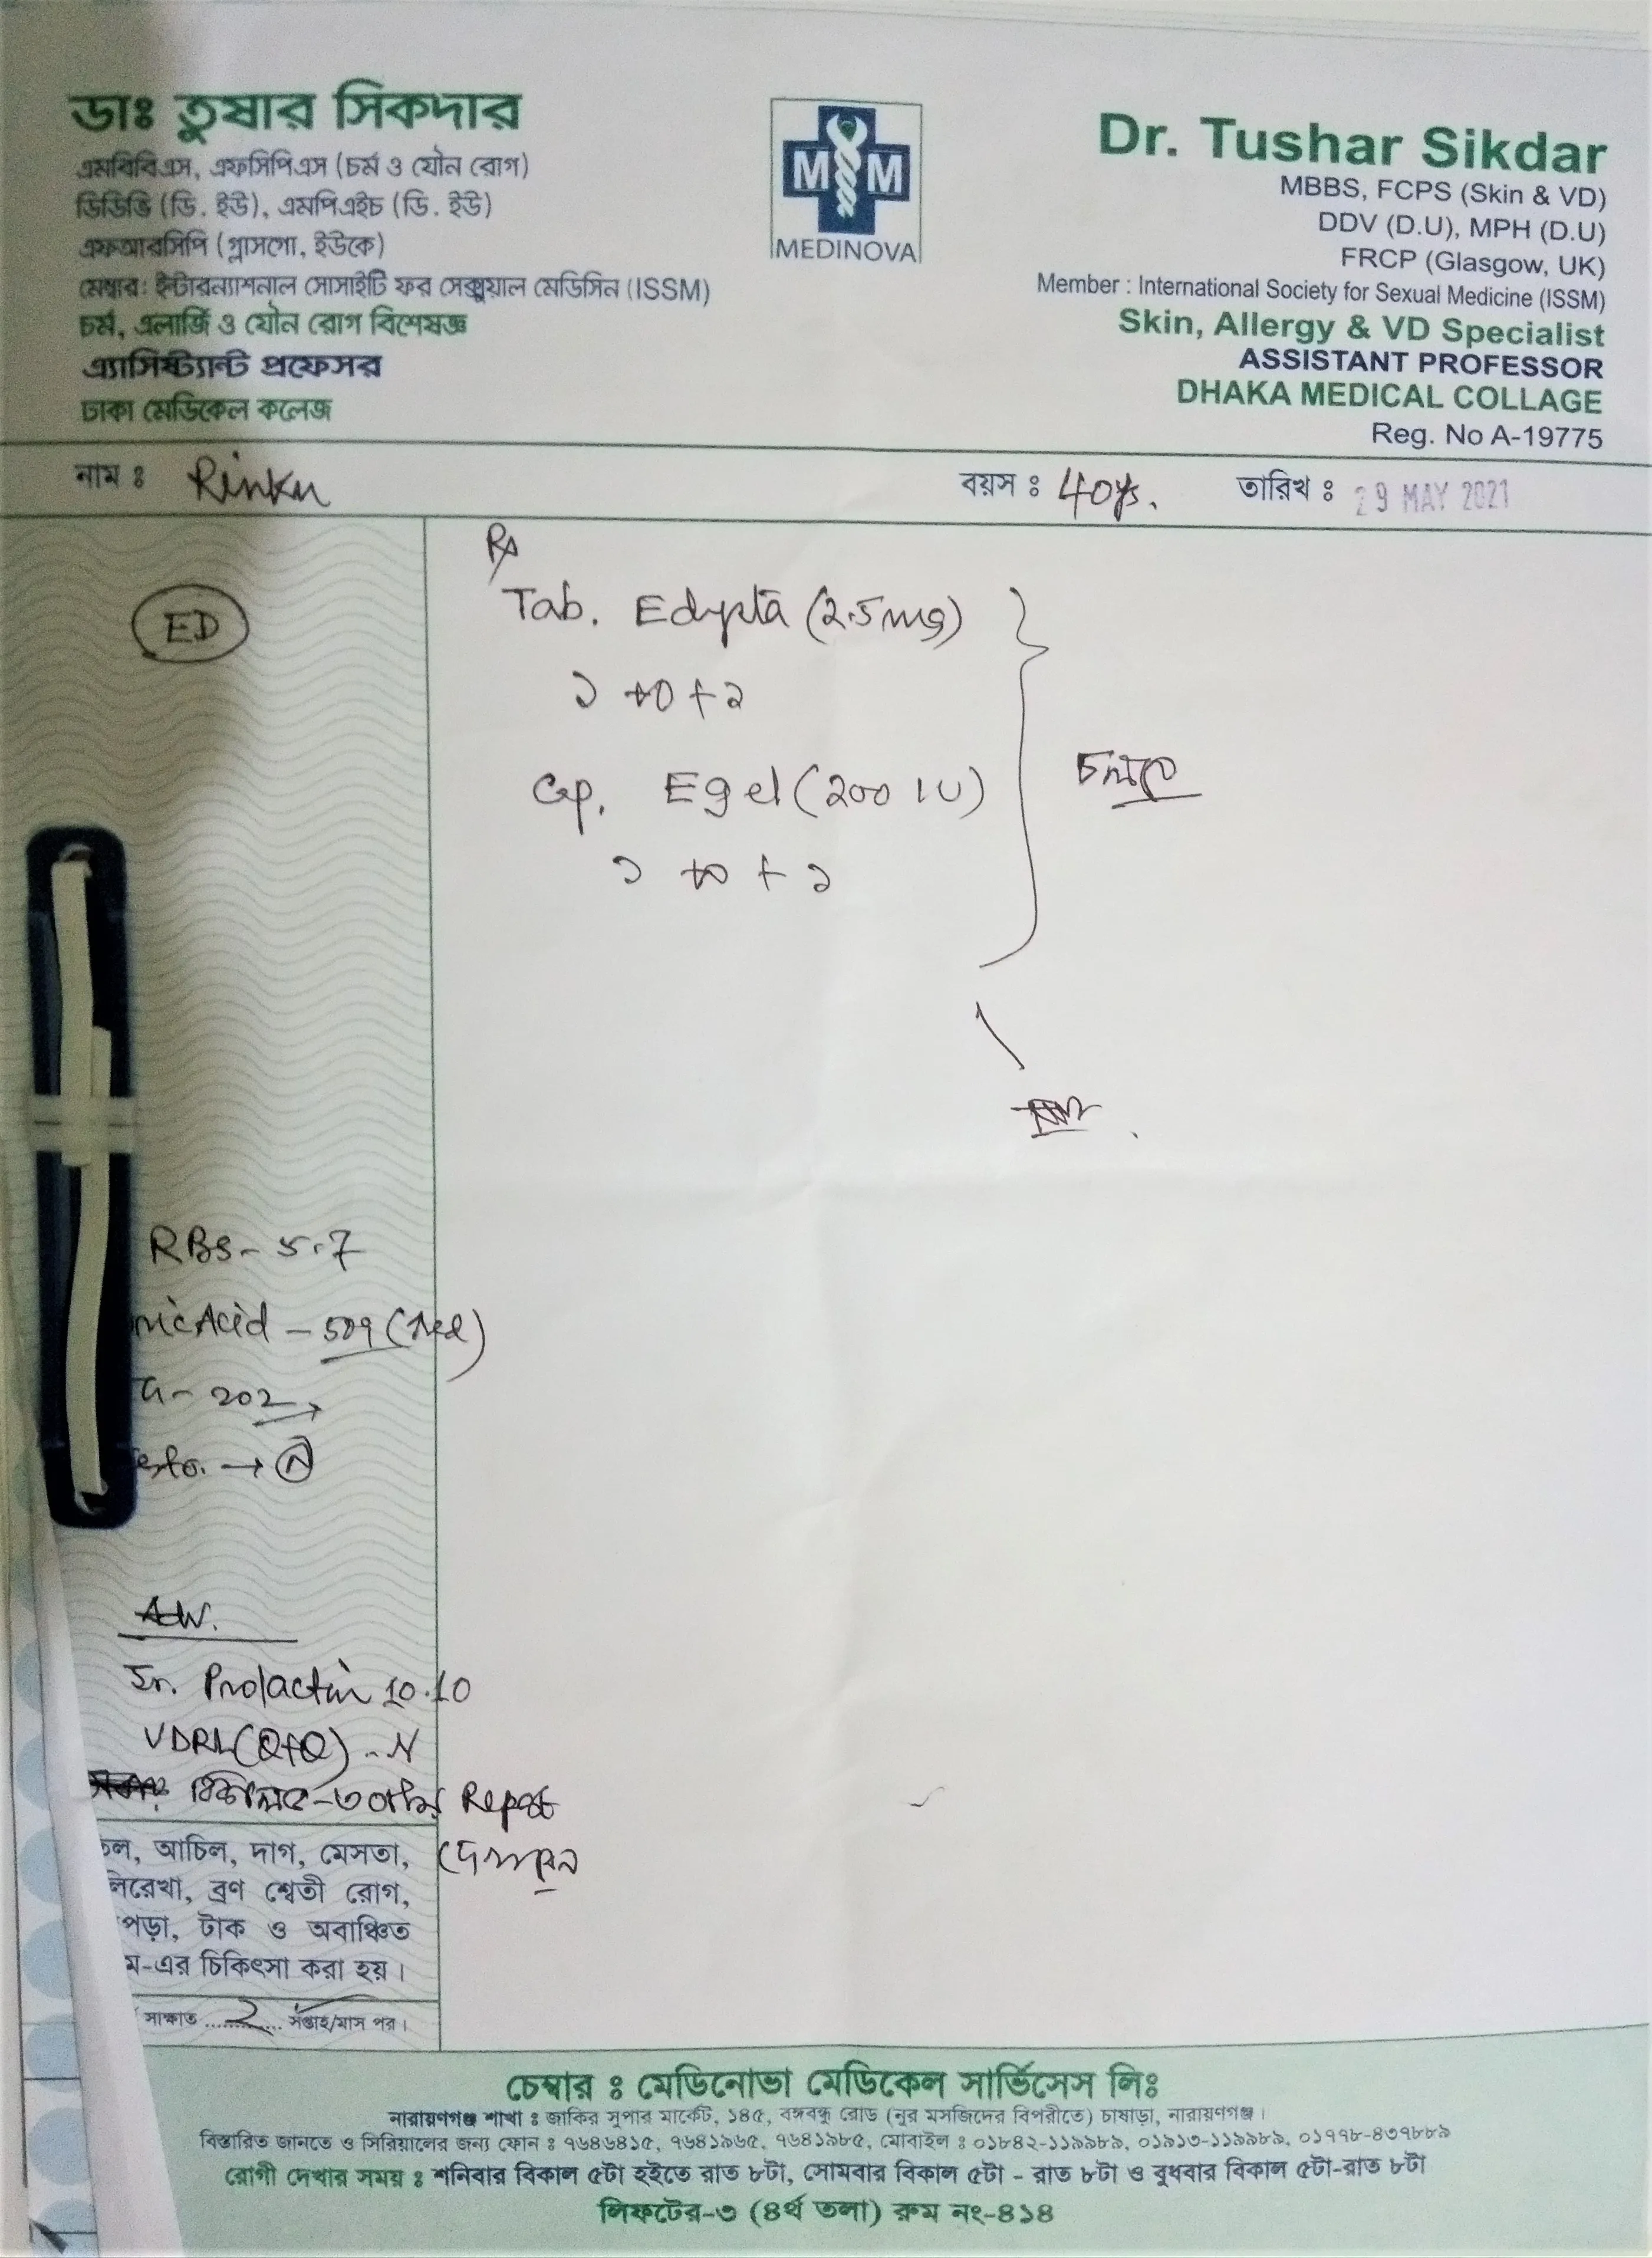 ডাঃ তুষার সিকদার
এমবিবিএস, এফসিপিএস (চর্ম ও যৌন রোগ)
ডিডিভি (ডি. ইউ), এমপিএইচ (ডি. ইউ)
এফআরসিপি (গ্লাসগো, ইউকে)
মেম্বার: ইন্টারন্যাশনাল সোসাইটি ফর সেক্সুয়াল মেডিসিন (ISSM)
চর্ম, এলার্জি ও যৌন রোগ বিশেষজ্ঞ
এ্যাসিষ্ট্যান্ট প্রফেসর
ঢাকা মেডিকেল কলেজ
M M
MEDINOVA
Dr. Tushar Sikdar
MBBS, FCPS (Skin & VD)
DDV (D.U), MPH (D.U)
FRCP (Glasgow, UK)
Member : International Society for Sexual Medicine (ISSM)
Skin, Allergy & VD Specialist
ASSISTANT PROFESSOR
DHAKA MEDICAL COLLAGE
Reg. No A-19775
নাম ঃ Rinku বয়স ঃ 40ys. তারিখ ঃ 29 MAY 2021
ED
Rx
Tab. Edysta (2.5mg)
১ +0 + ১
Cap. Egel (200 IU)
১ +0 + ১
চলবে
RBS - 5.7
ric Acid - 509
- 202
esto. → N
Sr. Prolactin 10.10
VDRL (Q+Q) - N
Report
দেখাবেন
চল, আচিল, দাগ, মেসতা,
লিরেখা, ব্রণ শ্বেতী রোগ,
পড়া, টাক ও অবাঞ্চিত
ম-এর চিকিৎসা করা হয়।
সাক্ষাত ....2.... সপ্তাহ/মাস পর।
চেম্বার ঃ মেডিনোভা মেডিকেল সার্ভিসেস লিঃ
নারায়ণগঞ্জ শাখা ঃ জাকির সুপার মার্কেট, ১৪৫, বঙ্গবন্ধু রোড (নুর মসজিদের বিপরীতে) চাষাড়া, নারায়ণগঞ্জ।
বিস্তারিত জানতে ও সিরিয়ালের জন্য ফোন ঃ ৭৬৪৬৪১৫, ৭৬৪১৯৬৫, ৭৬৪১৯৮৫, মোবাইল ঃ ০১৮৪২-১১৯৯৮৯, ০১৯১৩-১১৯৯৮৯, ০১৭৭৮-৪৩৭৮৮৯
রোগী দেখার সময় ঃ শনিবার বিকাল ৫টা হইতে রাত ৮টা, সোমবার বিকাল ৫টা - রাত ৮টা ও বুধবার বিকাল ৫টা-রাত ৮টা
লিফটের-৩ (৪র্থ তলা) রুম নং-৪১৪